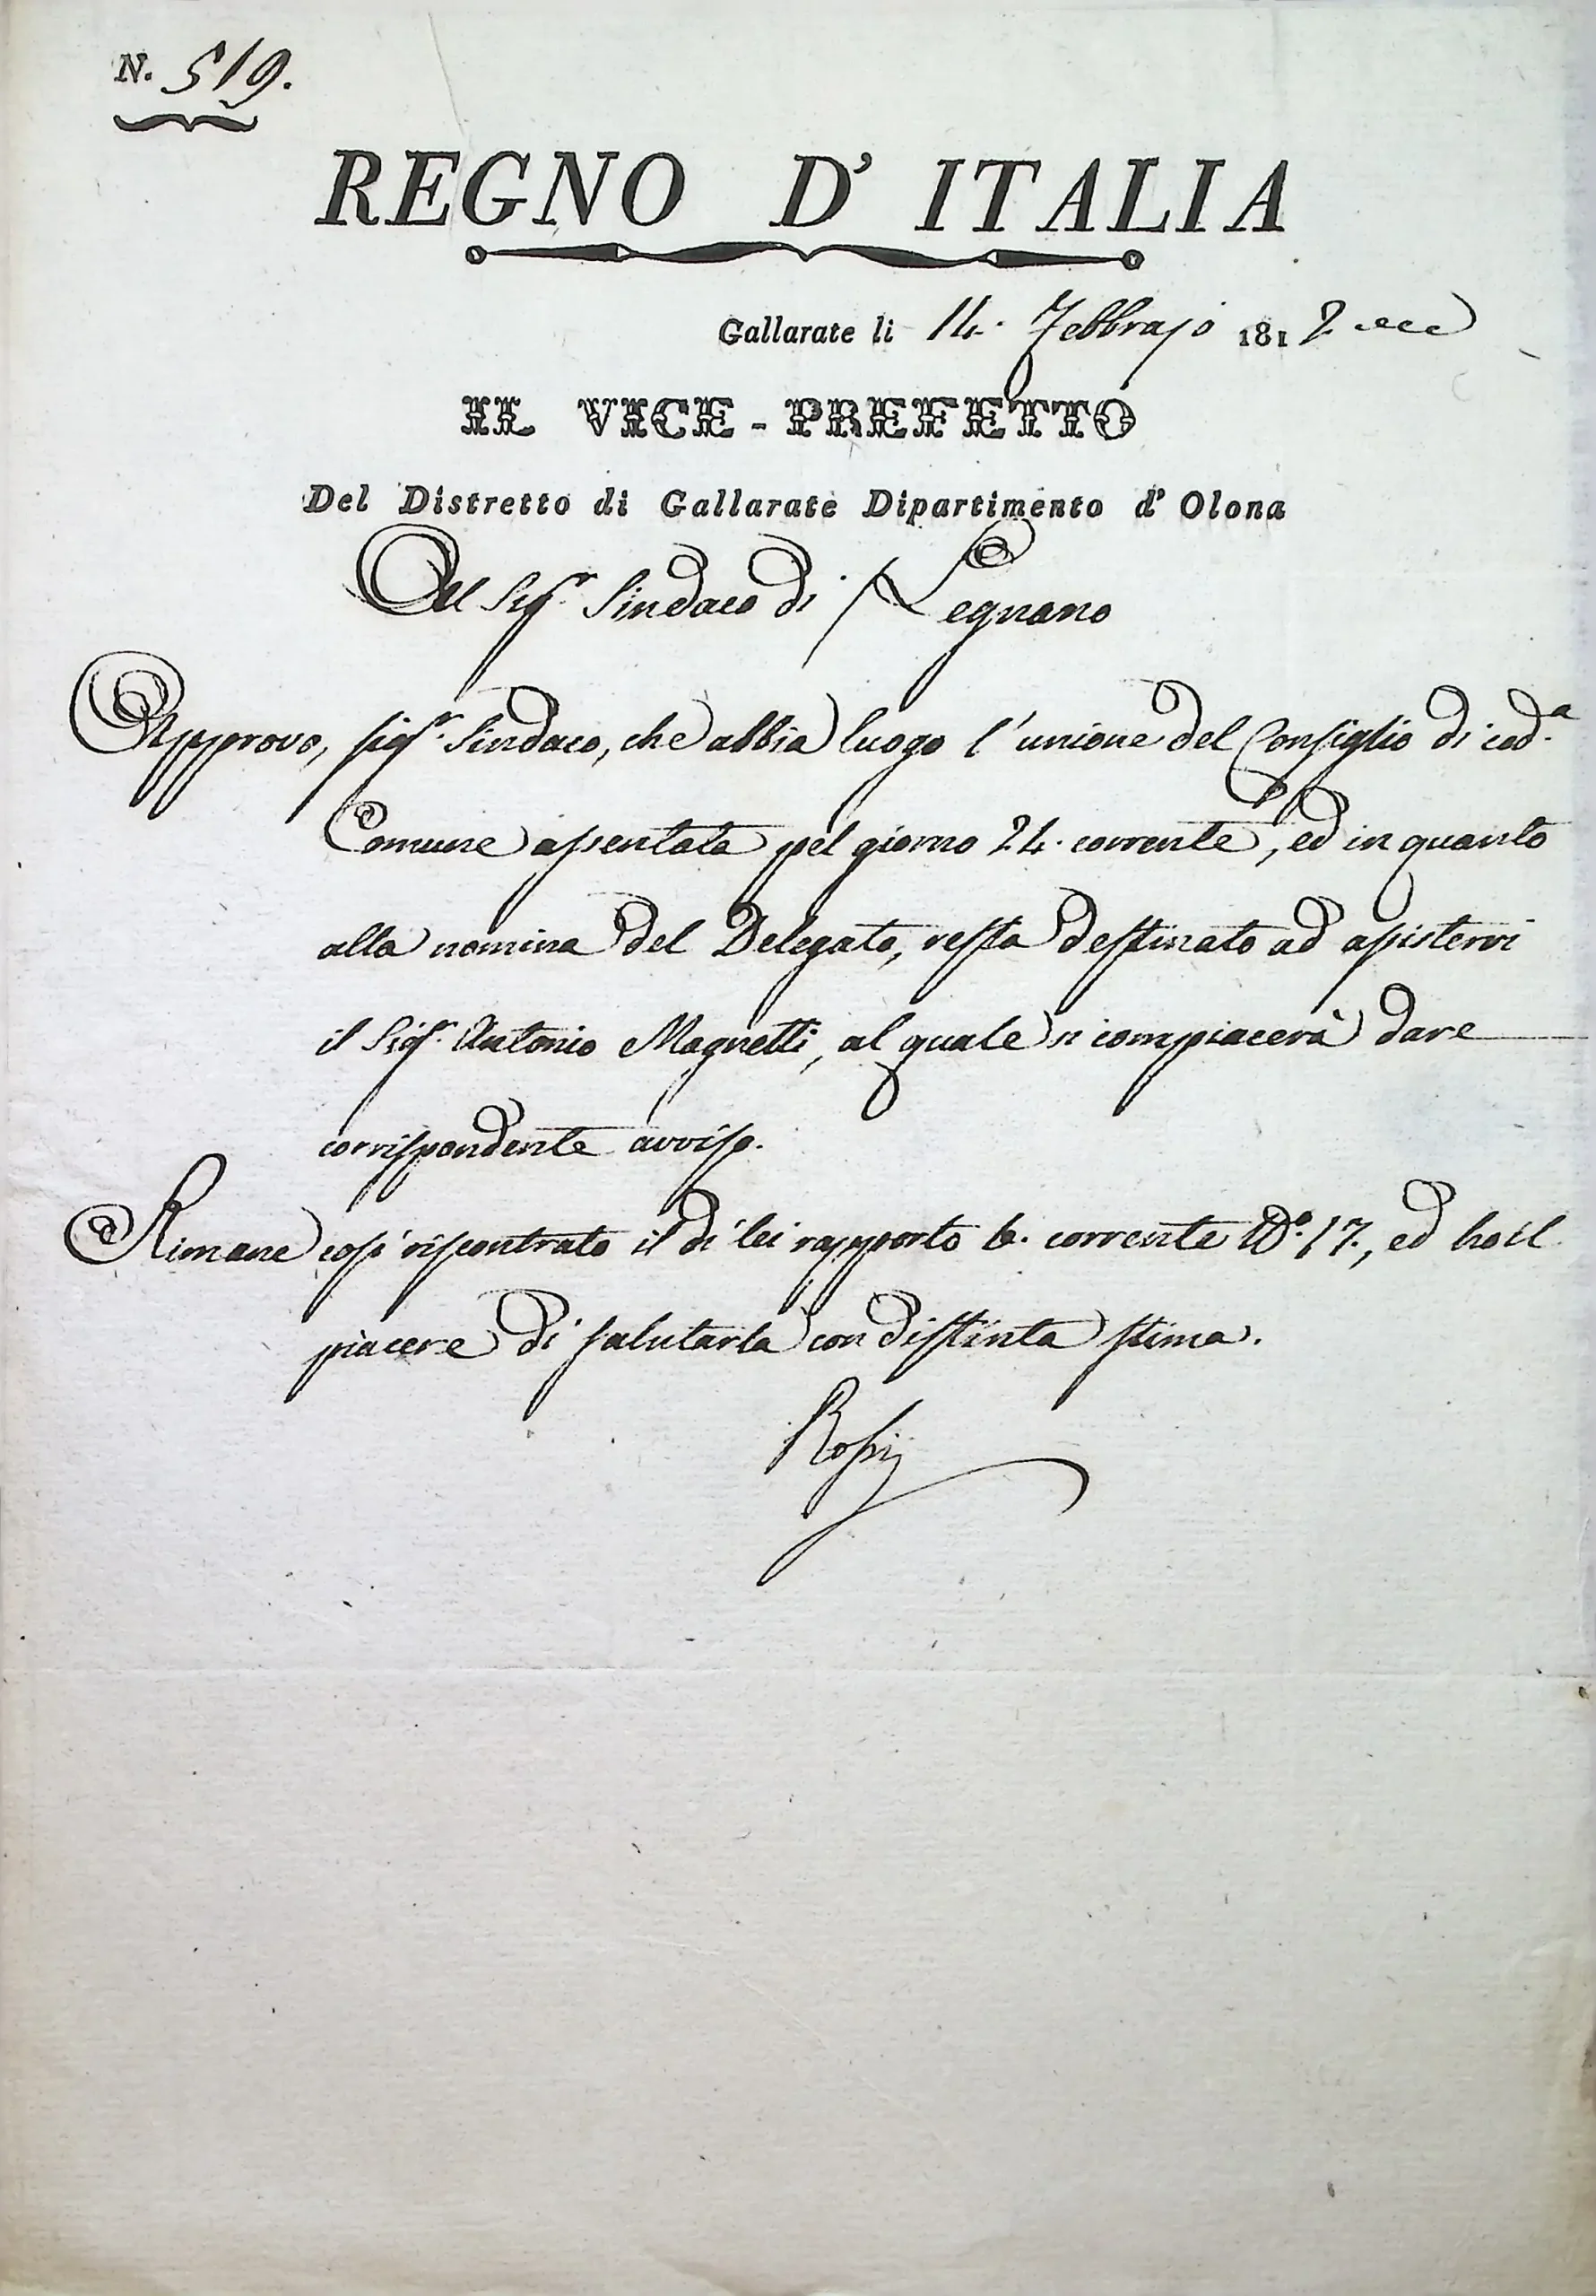 N. 519.
REGNO D' ITALIA
Gallarate li 14. Febbrajo 1812
IL VICE-PREFETTO
Del Distretto di Gallarate Dipartimento d' Olona
Al Sigr. Sindaco di Legnano
Approvo, sigr. Sindaco, che abbia luogo l'unione del Consiglio di codᵃ.
Comune assentata pel giorno 24. corrente, ed in quanto
alla nomina del Delegato, resta destinato ad assistervi
il Sigr. Antonio Magnetti, al quale si compiacerà dare
corrispondente avviso.
Rimane così riscontrato il di lei rapporto 6. corrente Nº. 17., ed ho il
piacere di salutarla con distinta stima.
Rossi